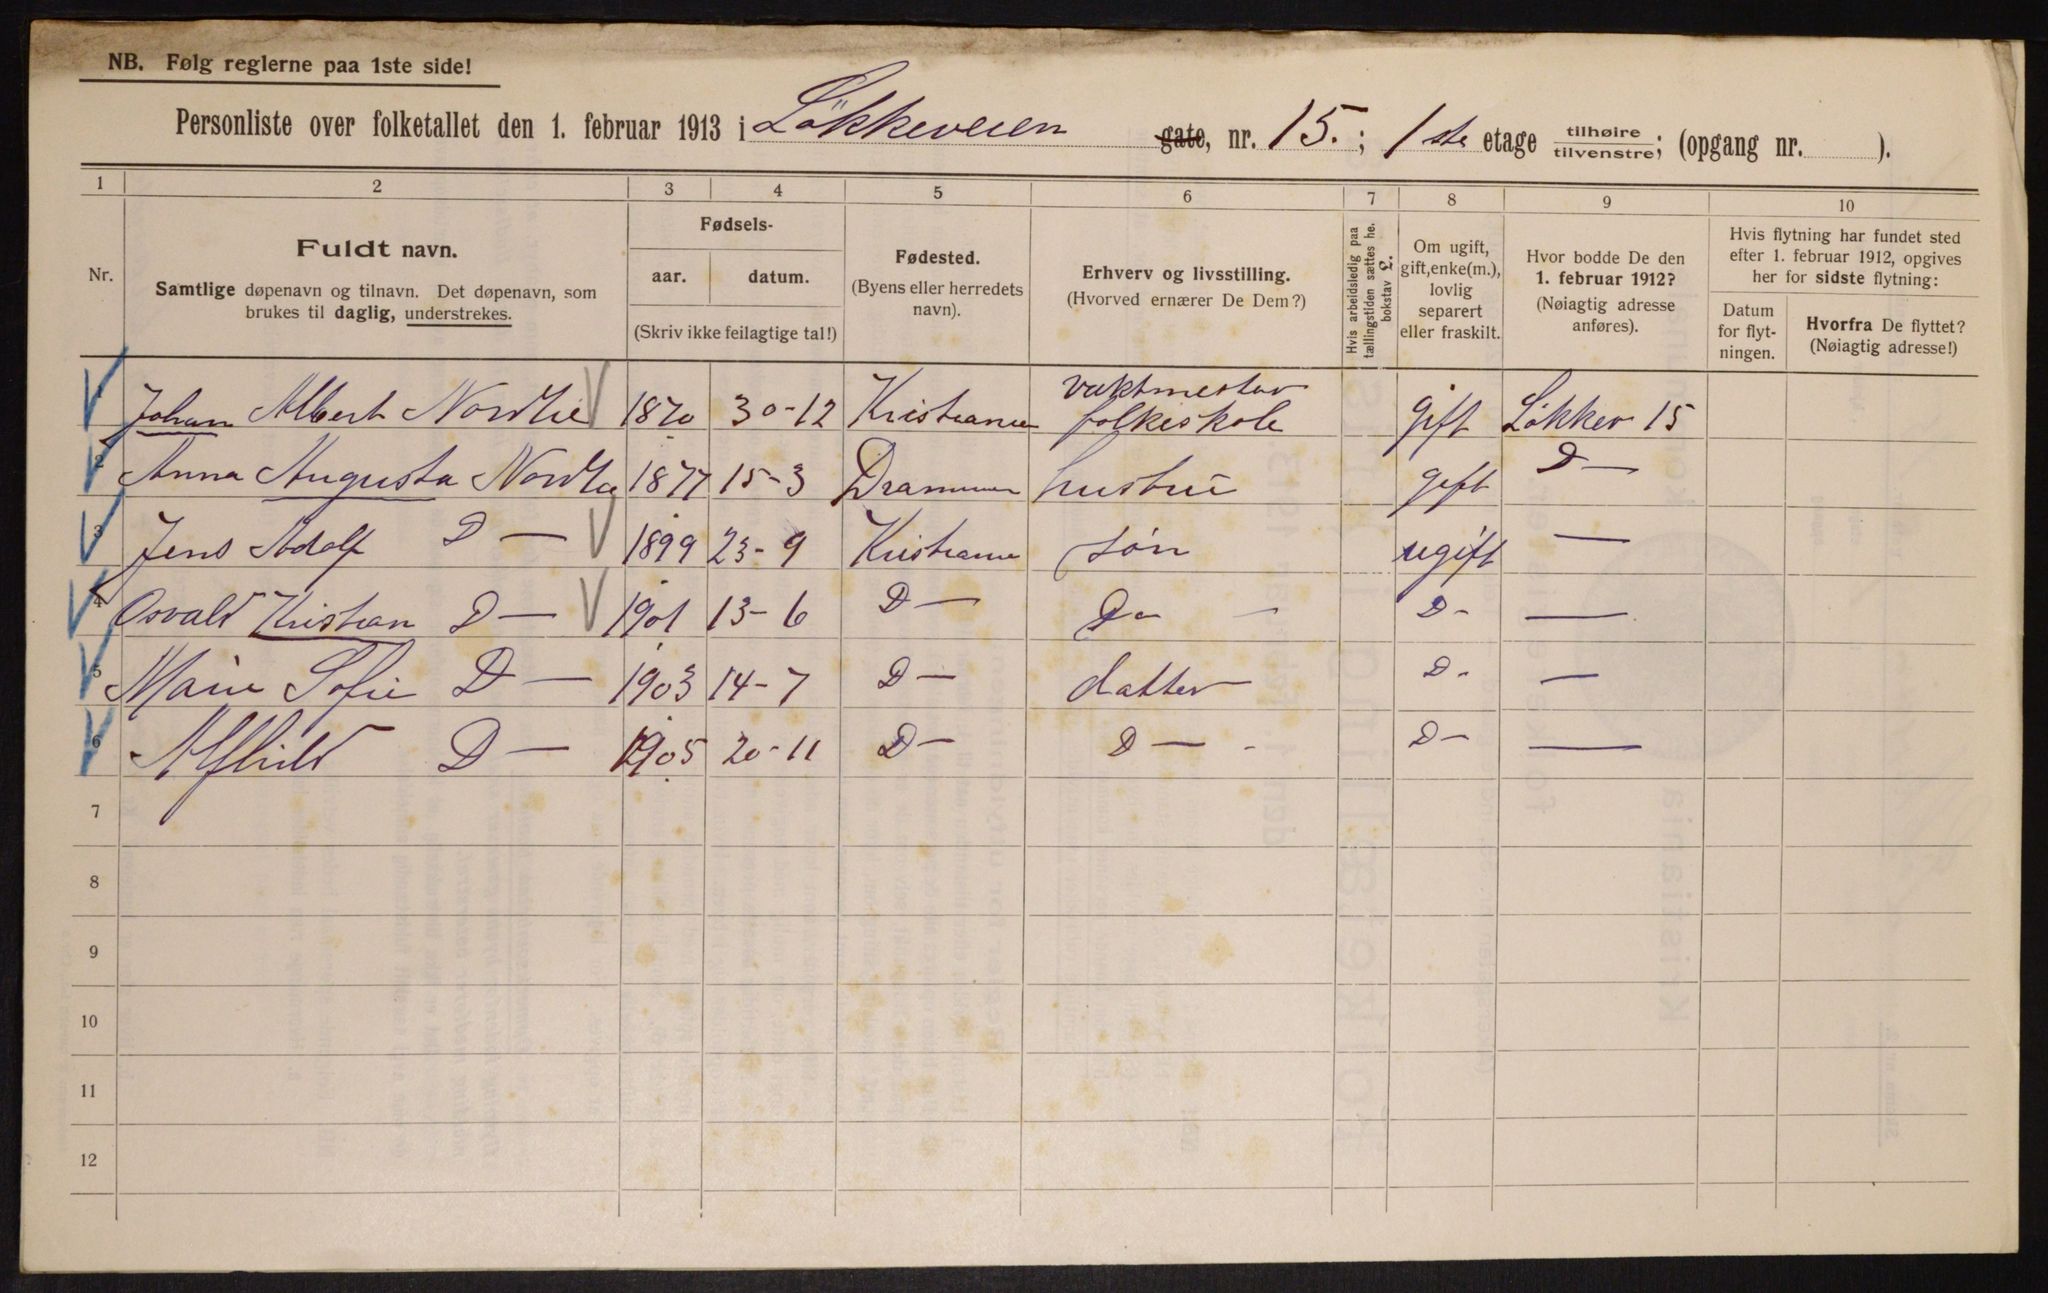 NB. Følg reglerne paa 1ste side!
Personliste over folketallet den 1. februar 1913 i Løkkeveien gate, nr. 15.; 1ste etage tilhøire/tilvenstre; (opgang nr. ).
1 2 3 4 5 6 7 8 9 10
Nr.
Fuldt navn.
Samtlige døpenavn og tilnavn. Det døpenavn, som
brukes til daglig, understrekes.
Fødsels-
aar. datum.
(Skriv ikke feilagtige tal!)
Fødested.
(Byens eller herredets
navn).
Erhverv og livsstilling.
(Hvorved ernærer De Dem?)
Hvis arbeidsledig paa
tællingstiden sættes he.
bokstav £.
Om ugift,
gift, enke(m.),
lovlig
separert
eller fraskilt.
Hvor bodde De den
1. februar 1912?
(Nøiagtig adresse
anføres).
Hvis flytning har fundet sted
efter 1. februar 1912, opgives
her for sidste flytning:
Datum
for flyt-
ningen.
Hvorfra De flyttet?
(Nøiagtig adresse!)
1 Johan Albert Nordlie 1870 30-12 Kristiania vaktmester folkeskole gift Løkkev 15
2 Anna Augusta Nordlie 1877 15-3 Drammen hustru gift D—
3 Jens Adolf D— 1899 23-9 Kristiania søn ugift —
4 Osvald Kristian D— 1901 13-6 D— D— D- —
5 Marie Sofie D— 1903 14-7 D— datter D- —
6 Alfhild D— 1905 20-11 D— D— D— —
7
8
9
10
11
12